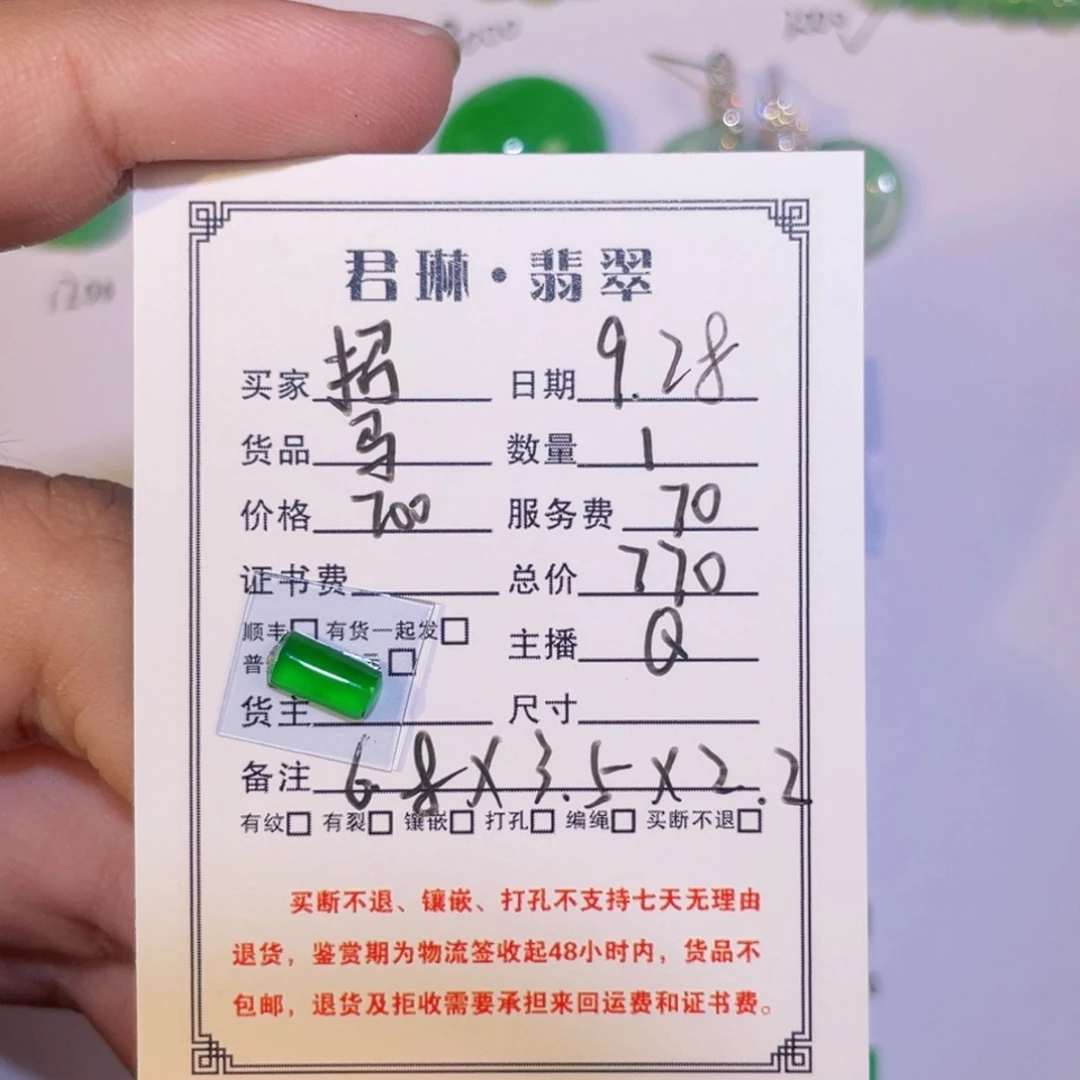 1200
君琳·翡翠
买家 招 日期 9.28
货品 马 数量 1
价格 700 服务费 70
证书费 总价 770
顺丰 有货一起发 主播 Q
普
货主 尺寸
备注 6.8×3.5×2.2
有纹 有裂 镶嵌 打孔 编绳 买断不退
买断不退、镶嵌、打孔不支持七天无理由
退货，鉴赏期为物流签收起48小时内，货品不
包邮，退货及拒收需要承担来回运费和证书费。